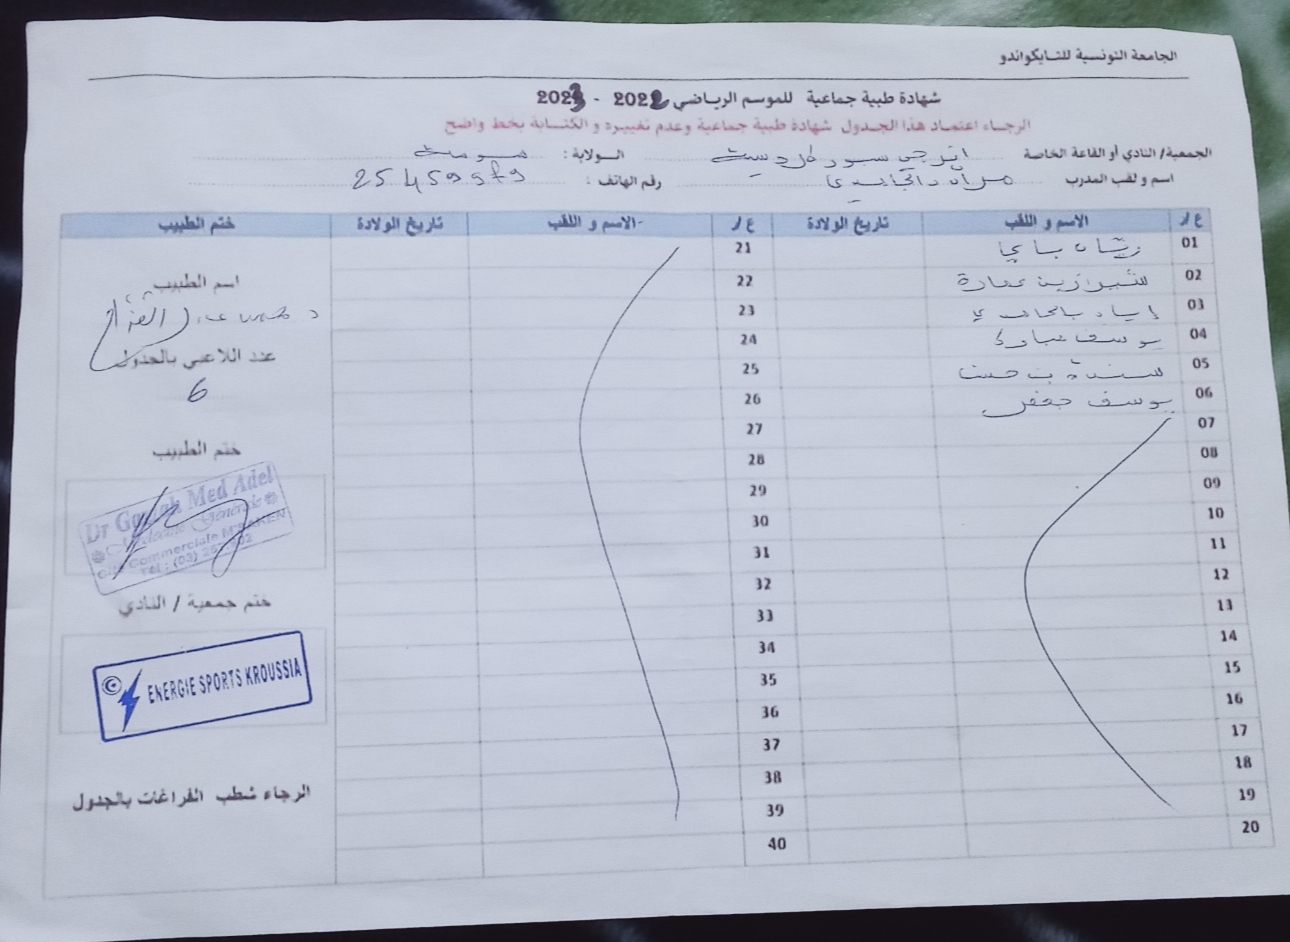 الجامعة التونسية للتايكواندو
شهادة طبية جماعية للموسم الرياضي 2022 - 2023
الرجاء اعتماد هذا الجدول شهادة طبية جماعية وعدم تغييره و الكتابة بخط واضح
الجمعية/ النادي أو القاعة الخاصة انرجي سبور كروسية الولاية : سوسة
اسم و لقب المدرب رقم الهاتف : 25459979
ع/ر الاسم و اللقب تاريخ الولادة ع/ر الاسم و اللقب تاريخ الولادة ختم الطبيب
01 21
02 شيرازين عمارة 22
03 اياد 23
04 يوسف مبارك 24
05 سندة بن حسن 25
06 يوسف جعفر 26
07 27
08 28
09 29
10 30
11 31
12 32
13 33
14 34
15 35
16 36
17 37
18 38
19 39
20 40
اسم الطبيب
عدد اللاعبي بالجدول
6
ختم الطبيب
Dr Med Adel
Médecine Générale
Commerciale
Tel : (03)
ختم جمعية / النادي
© ENERGIE SPORTS KROUSSIA
الرجاء شطب الفراغات بالجدول